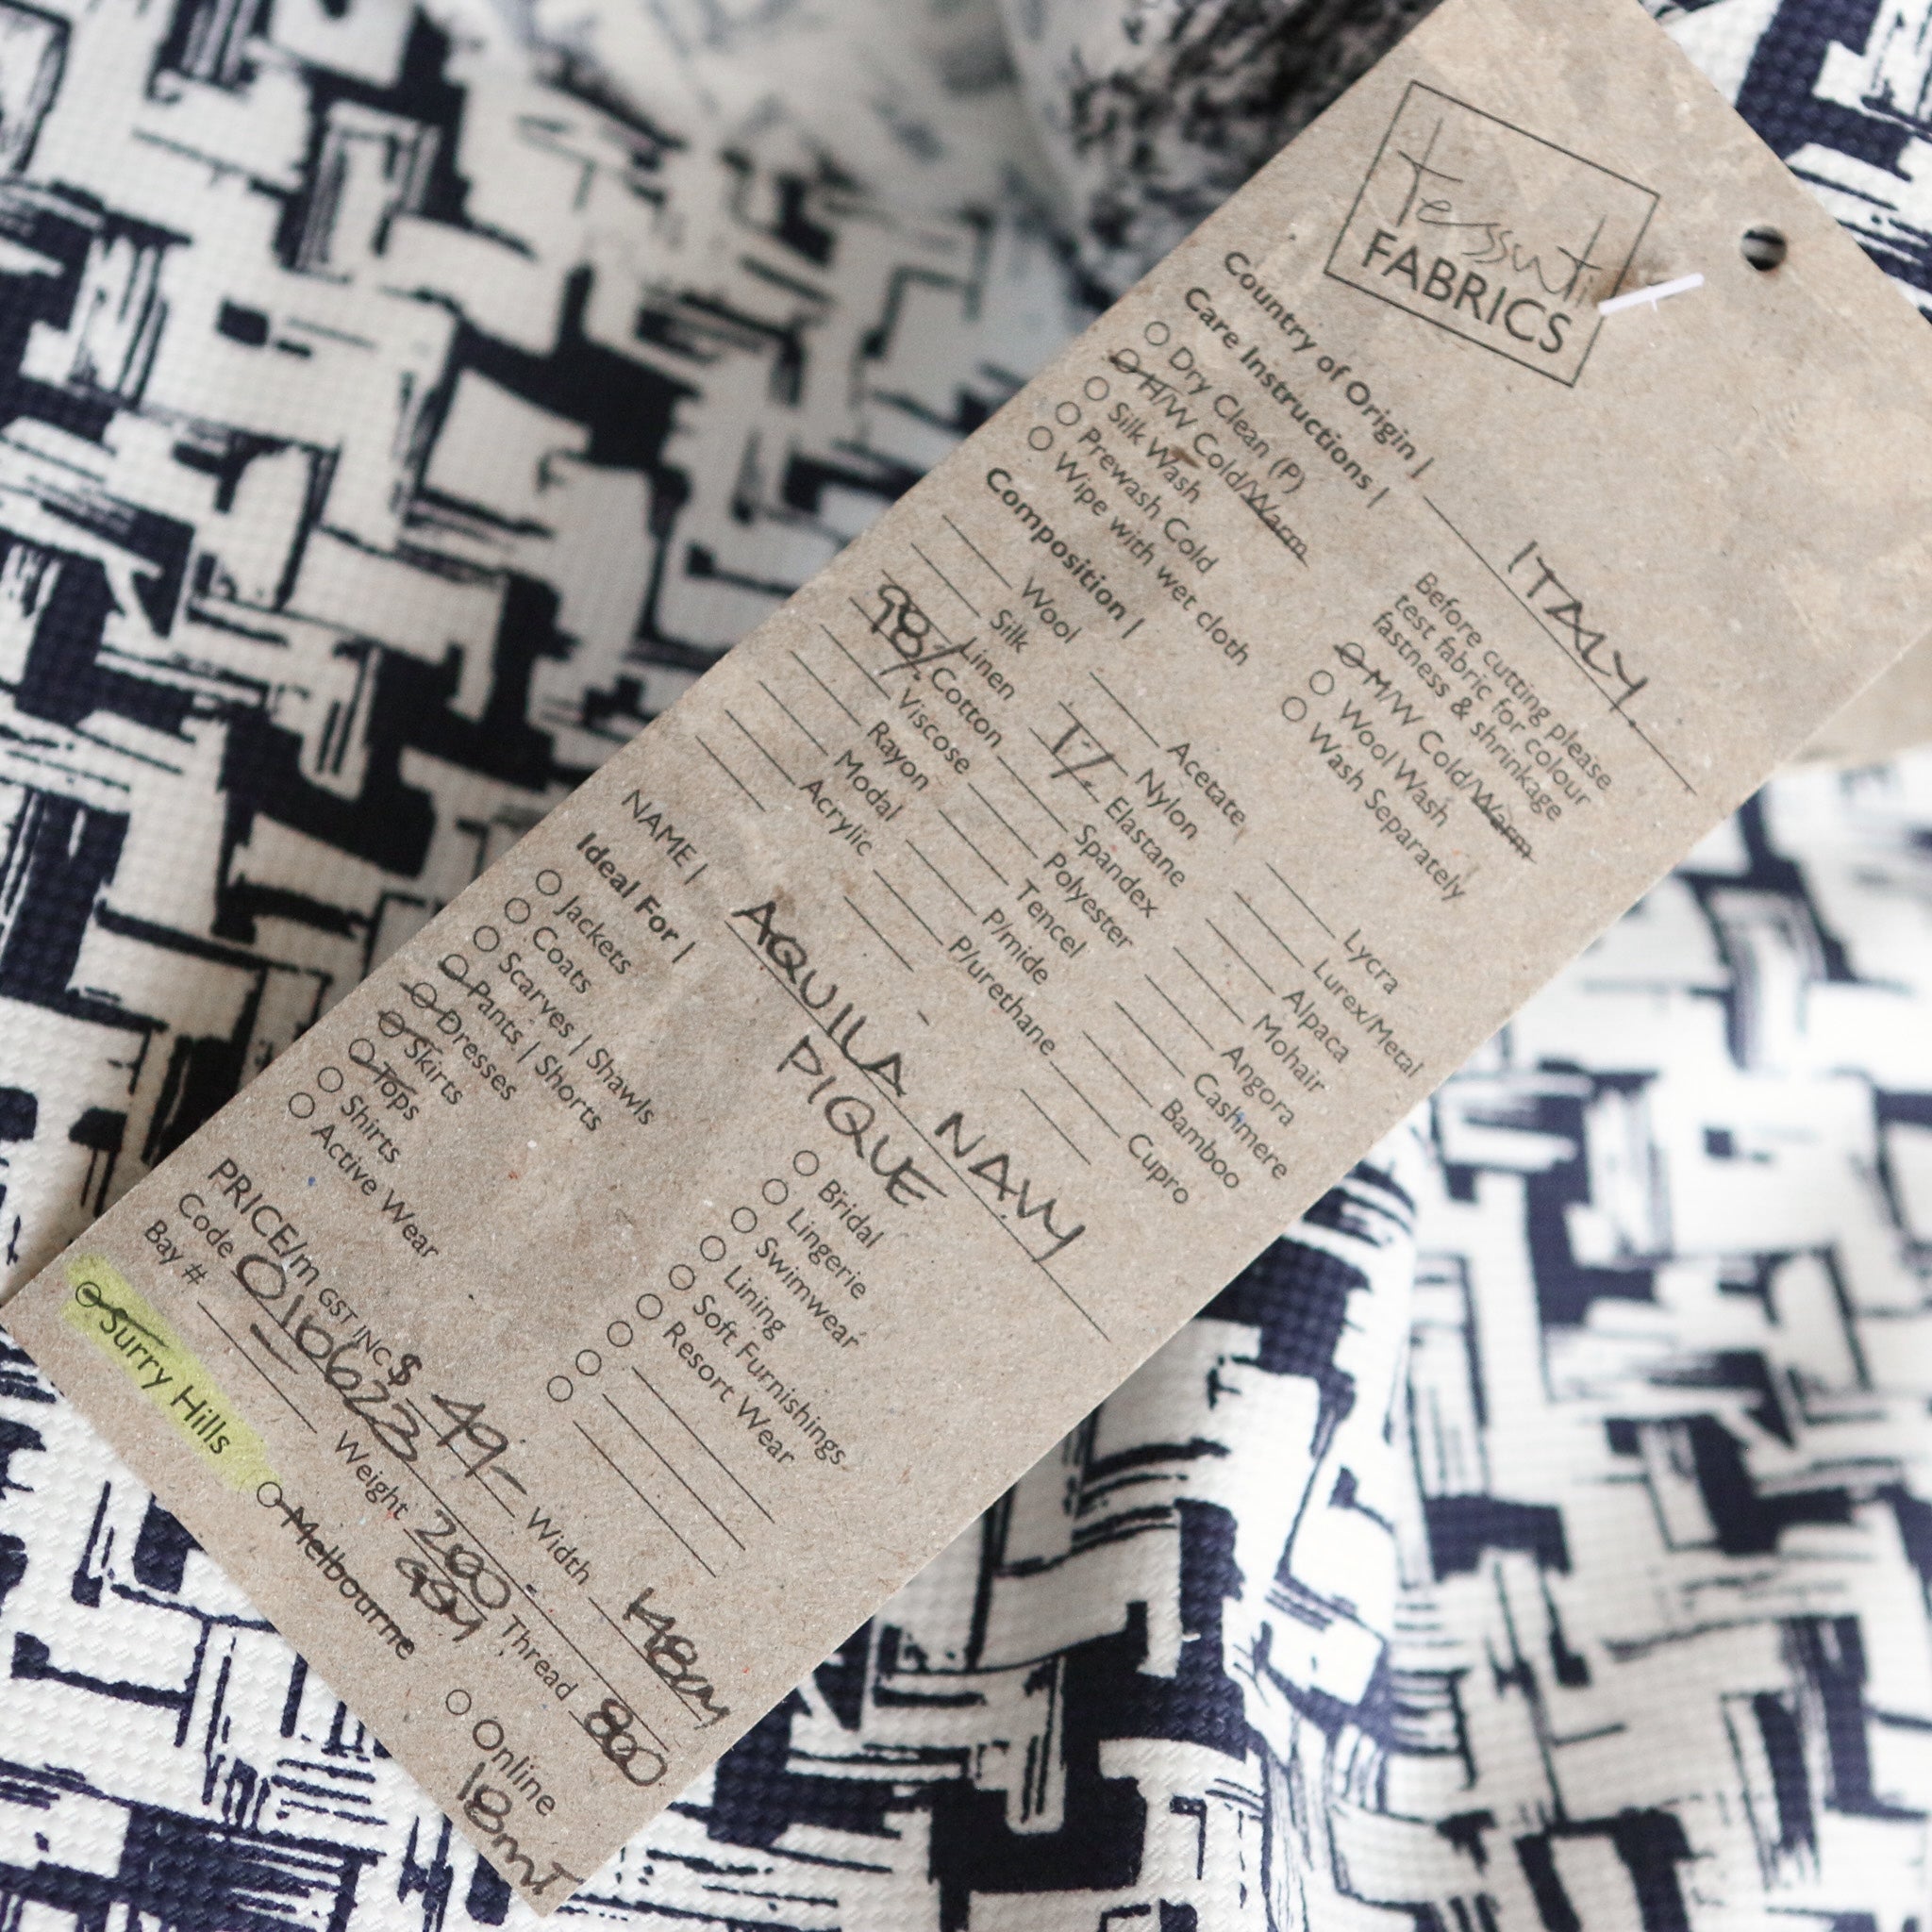 tessuti
FABRICS
Country of Origin | ITALY.
Care Instructions |
Before cutting please
test fabric for colour
fastness & shrinkage
Dry Clean (P)
H/W Cold/Warm
Silk Wash
Prewash Cold
Wipe with wet cloth
M/W Cold/Warm
Wool Wash
Wash Separately
Composition |
Wool
Silk
Linen
98% Cotton
Viscose
Rayon
Modal
Acrylic
Acetate
Nylon
Elastane
Spandex
Polyester
Tencel
P/mide
P/urethane
Lycra
Lurex/Metal
Alpaca
Mohair
Angora
Cashmere
Bamboo
Cupro
NAME | AQUILA NAVY
PIQUE
Ideal For |
Jackets
Coats
Scarves | Shawls
Pants | Shorts
Dresses
Skirts
Tops
Shirts
Active Wear
Bridal
Lingerie
Swimwear
Lining
Soft Furnishings
Resort Wear
PRICE/m GST INC $ 49- Width 148cm
Code 016623 Weight 200 GSM Thread 800
Bay #
Surry Hills Melbourne Online
18mt